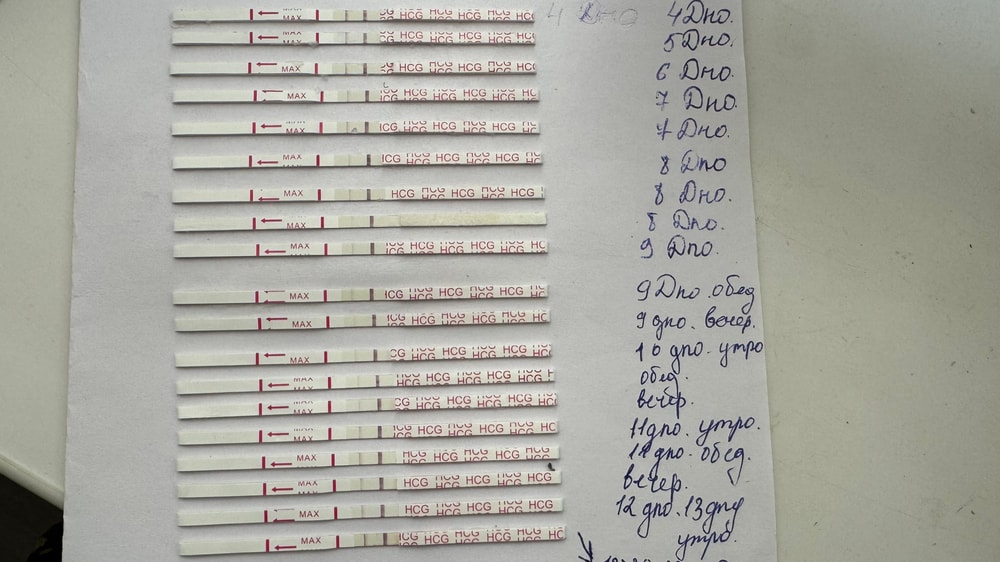 MAX HCG HCG HCG HCG HCG 4 Дпо 4 Дпо.
HCG HCG HCG HCG HCG 5 Дпо.
MAX HCG HCG HCG HCG HCG 6 Дпо.
MAX HCG HCG HCG HCG HCG 7 Дпо.
MAX HCG HCG HCG HCG HCG 7 Дпо.
MAX HCG HCG HCG HCG HCG 8 Дпо
MAX HCG HCG HCG HCG HCG 8 Дпо.
MAX 8 Дпо.
MAX HCG HCG HCG HCG HCG 9 Дпо.
MAX HCG HCG HCG HCG HCG 9 Дпо. обед
MAX HCG HCG HCG HCG HCG 9 дпо. вечер.
MAX HCG HCG HCG HCG HCG 10 дпо. утро
MAX HCG HCG HCG HCG HCG обед.
MAX HCG HCG HCG HCG HCG вечер.
MAX HCG HCG HCG HCG HCG 11 дпо. утро.
MAX HCG HCG HCG HCG HCG 11 дпо. обед.
MAX HCG HCG HCG HCG HCG вечер.
MAX HCG HCG HCG HCG HCG 12 дпо. 13 дпо
MAX HCG HCG HCG HCG HCG утро.